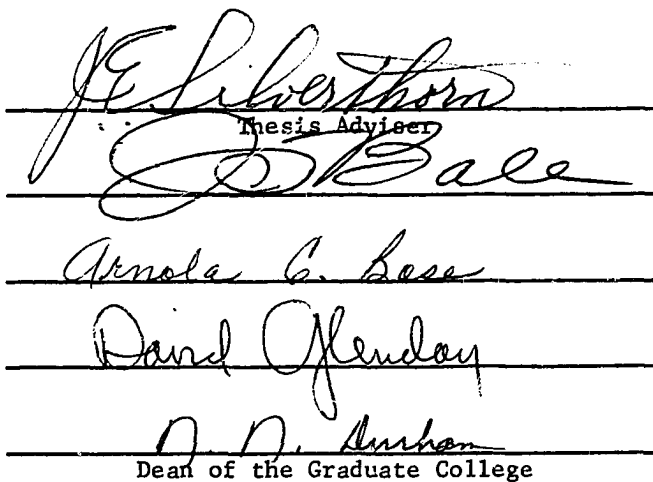 J E Silverthorn
Thesis Adviser
Bale
Arnola C. Bose
David Glenday
N. N. Durham
Dean of the Graduate College